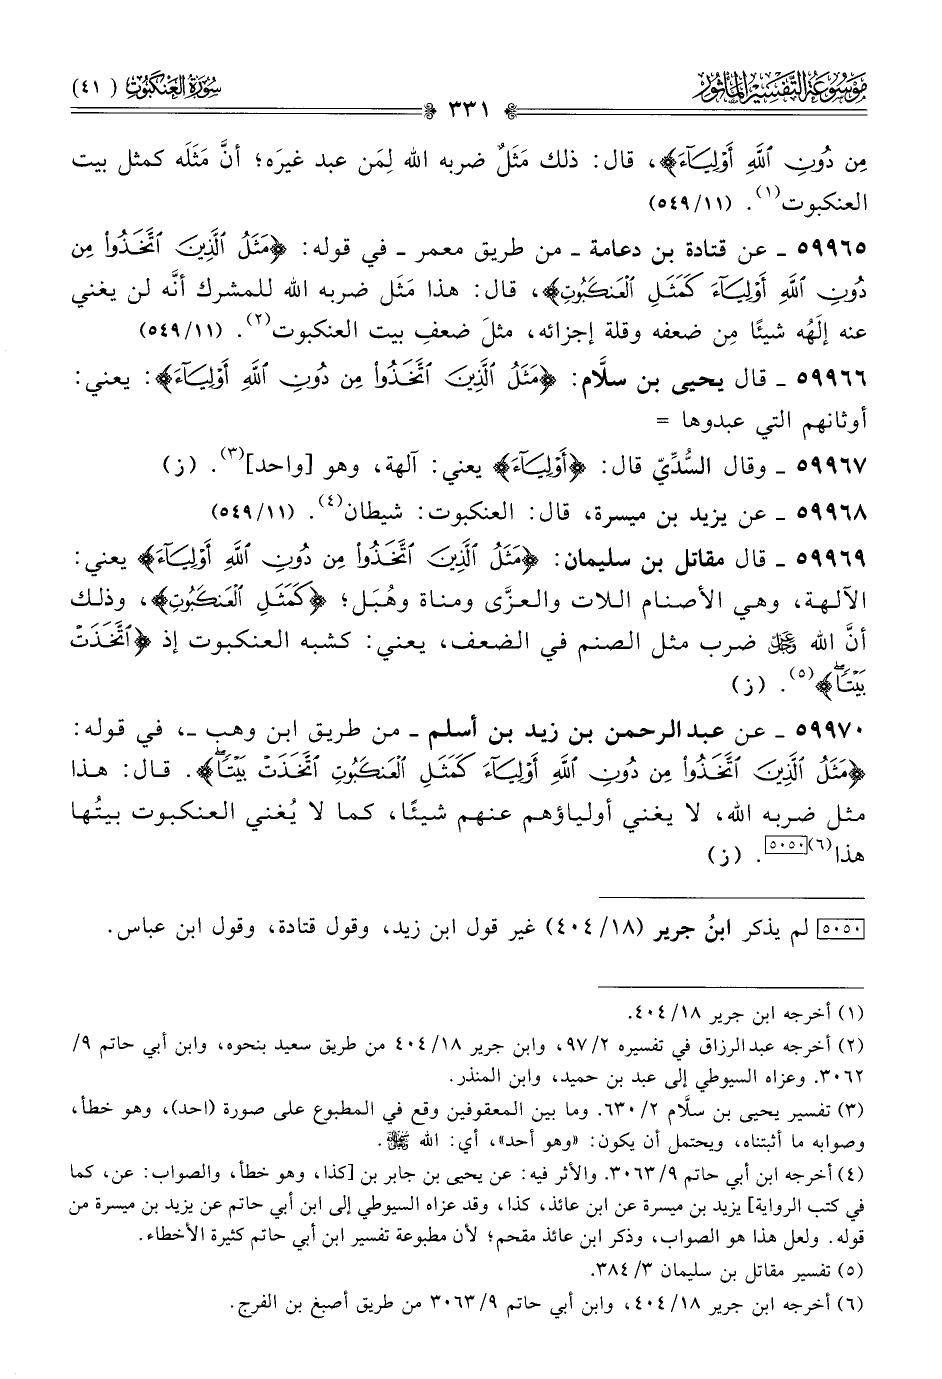 موسوعة التفسير المأثور
سورة العنكبوت (٤١)
٣٣١
مِن دُونِ ٱللَّهِ أَوْلِيَآءَ﴾، قال: ذلك مَثَلٌ ضربه الله لِمَن عبد غيرَه؛ أنَّ مَثَلَه كمثل بيت
العنكبوت(١). (٥٤٩/١١)
٥٩٩٦٥ ـ عن قتادة بن دعامة ـ من طريق معمر ـ في قوله: ﴿مَثَلُ ٱلَّذِينَ ٱتَّخَذُواْ مِن
دُونِ ٱللَّهِ أَوْلِيَآءَ كَمَثَلِ ٱلْعَنكَبُوتِ﴾، قال: هذا مَثَل ضربه الله للمشرك أنَّه لن يغني
عنه إلَهُه شيئًا مِن ضعفه وقلة إجزائه، مثلَ ضعف بيت العنكبوت(٢). (٥٤٩/١١)
٥٩٩٦٦ ـ قال يحيى بن سلَّام: ﴿مَثَلُ ٱلَّذِينَ ٱتَّخَذُواْ مِن دُونِ ٱللَّهِ أَوْلِيَآءَ﴾: يعني:
أوثانهم التي عبدوها =
٥٩٩٦٧ ـ وقال السُّدِّيّ قال: ﴿أَوْلِيَآءَ﴾ يعني: آلهة، وهو [واحد](٣). (ز)
٥٩٩٦٨ ـ عن يزيد بن ميسرة، قال: العنكبوت: شيطان(٤). (٥٤٩/١١)
٥٩٩٦٩ ـ قال مقاتل بن سليمان: ﴿مَثَلُ ٱلَّذِينَ ٱتَّخَذُواْ مِن دُونِ ٱللَّهِ أَوْلِيَآءَ﴾ يعني:
الآلهة، وهي الأصنام اللات والعزَّى ومناة وهُبَل؛ ﴿كَمَثَلِ ٱلْعَنكَبُوتِ﴾، وذلك
أنَّ الله ﷿ ضرب مثل الصنم في الضعف، يعني: كشبه العنكبوت إذ ﴿ٱتَّخَذَتْ
بَيْتًاۖ﴾(٥). (ز)
٥٩٩٧٠ ـ عن عبدالرحمن بن زيد بن أسلم ـ من طريق ابن وهب ـ، في قوله:
﴿مَثَلُ ٱلَّذِينَ ٱتَّخَذُواْ مِن دُونِ ٱللَّهِ أَوْلِيَآءَ كَمَثَلِ ٱلْعَنكَبُوتِ ٱتَّخَذَتْ بَيْتًاۖ﴾. قال: هذا
مثل ضربه الله، لا يغني أولياؤهم عنهم شيئًا، كما لا يُغني العنكبوت بيتُها
هذا(٦)[٥٠٥٠]. (ز)
[٥٠٥٠] لم يذكر ابنُ جرير (٤٠٤/١٨) غير قول ابن زيد، وقول قتادة، وقول ابن عباس.
(١) أخرجه ابن جرير ٤٠٤/١٨.
(٢) أخرجه عبدالرزاق في تفسيره ٩٧/٢، وابن جرير ٤٠٤/١٨ من طريق سعيد بنحوه، وابن أبي حاتم ٩/
٣٠٦٢. وعزاه السيوطي إلى عبد بن حميد، وابن المنذر.
(٣) تفسير يحيى بن سلَّام ٦٣٠/٢. وما بين المعقوفين وقع في المطبوع على صورة (احد)، وهو خطأ،
وصوابه ما أثبتناه، ويحتمل أن يكون: «وهو أحد»، أي: الله ﷿.
(٤) أخرجه ابن أبي حاتم ٣٠٦٣/٩. والأثر فيه: عن يحيى بن جابر بن [كذا، وهو خطأ، والصواب: عن، كما
في كتب الرواية] يزيد بن ميسرة عن ابن عائذ، كذا، وقد عزاه السيوطي إلى ابن أبي حاتم عن يزيد بن ميسرة من
قوله. ولعل هذا هو الصواب، وذكر ابن عائذ مقحم؛ لأن مطبوعة تفسير ابن أبي حاتم كثيرة الأخطاء.
(٥) تفسير مقاتل بن سليمان ٣٨٤/٣.
(٦) أخرجه ابن جرير ٤٠٤/١٨، وابن أبي حاتم ٣٠٦٣/٩ من طريق أصبغ بن الفرج.